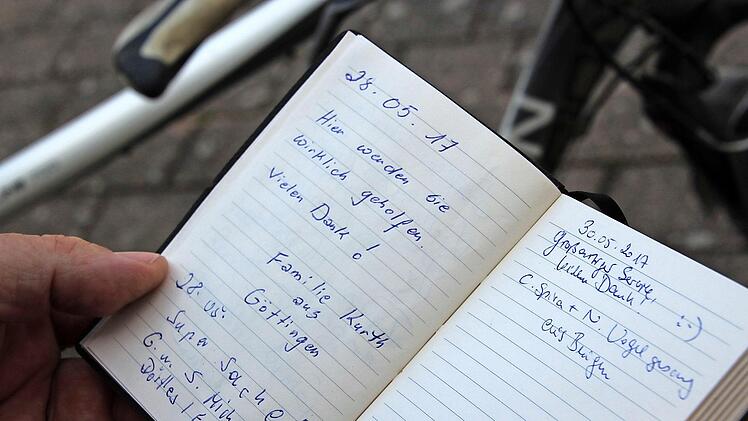 28.05.17
Hier wenden sie
wirklich geholfen.
Vielen Dank!
Familie Kurth
aus
Göttingen
28.05
Supa Sache
G. u. S. Mich
30.05.2017
Großartiger Service!
Vielen Dank! :-)
C. Spira + N. Vogelgesang
aus